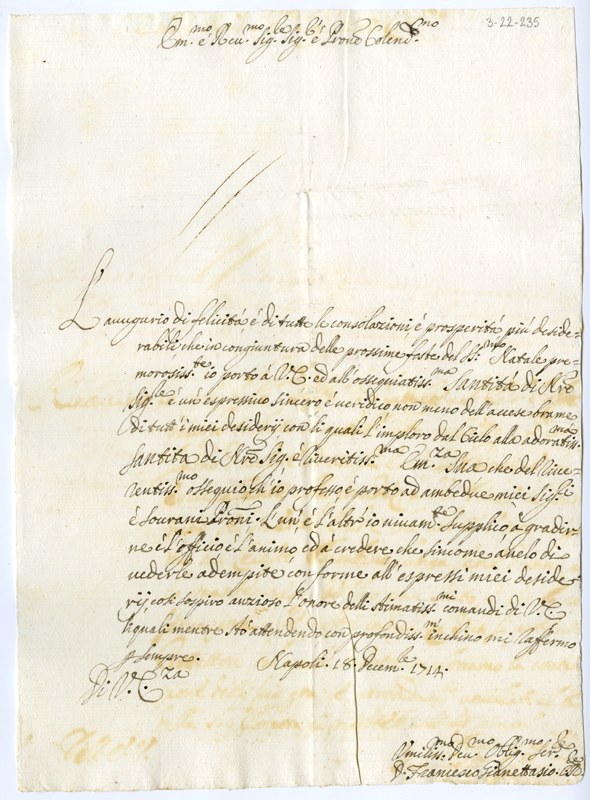 3-22-235
Em.mo e Reu.mo Sig.le Sig.e è Prone Colend.mo
L'augurio di felicità, è di tutte le consolazioni, è prosperità più deside-
rabili, che in congiuntura delle prossime feste del SS.mo Natale pre-
morosiss.te io porto à V.E. ed all'ossequiatiss.ma Santità di Nro
Sig.le è un espressivo sincero è veridico non meno dell'accese brame
di tutt'i miei desiderij con li quali l'imploro dal Cielo alla adoratiss.ma
Santità di Nro Sig. è riueritiss.ma Em.za Sua che del riue-
rentiss.mo ossequio ch'io professo è porto ad ambedue miei Sig.li
è Sourani Proni. L'un è l'altr'io viuam.te supplico à gradir-
ne è l'officio è l'animo, ed à credere che sincome anelo di
vederle adempite conforme all'espressi miei deside-
rij, così sospiro anzioso l'onore delli stimatiss.mi comandi di V.E.
li quali mentre stò attendendo con profondiss.mi inchino mi raffermo
p sempre. Napoli. 18. Dicem.le 1714.
Di V.E.za
Vmiliss.mo Deu.mo Oblig.mo Ser.e
D. Francesco Gianettasio.